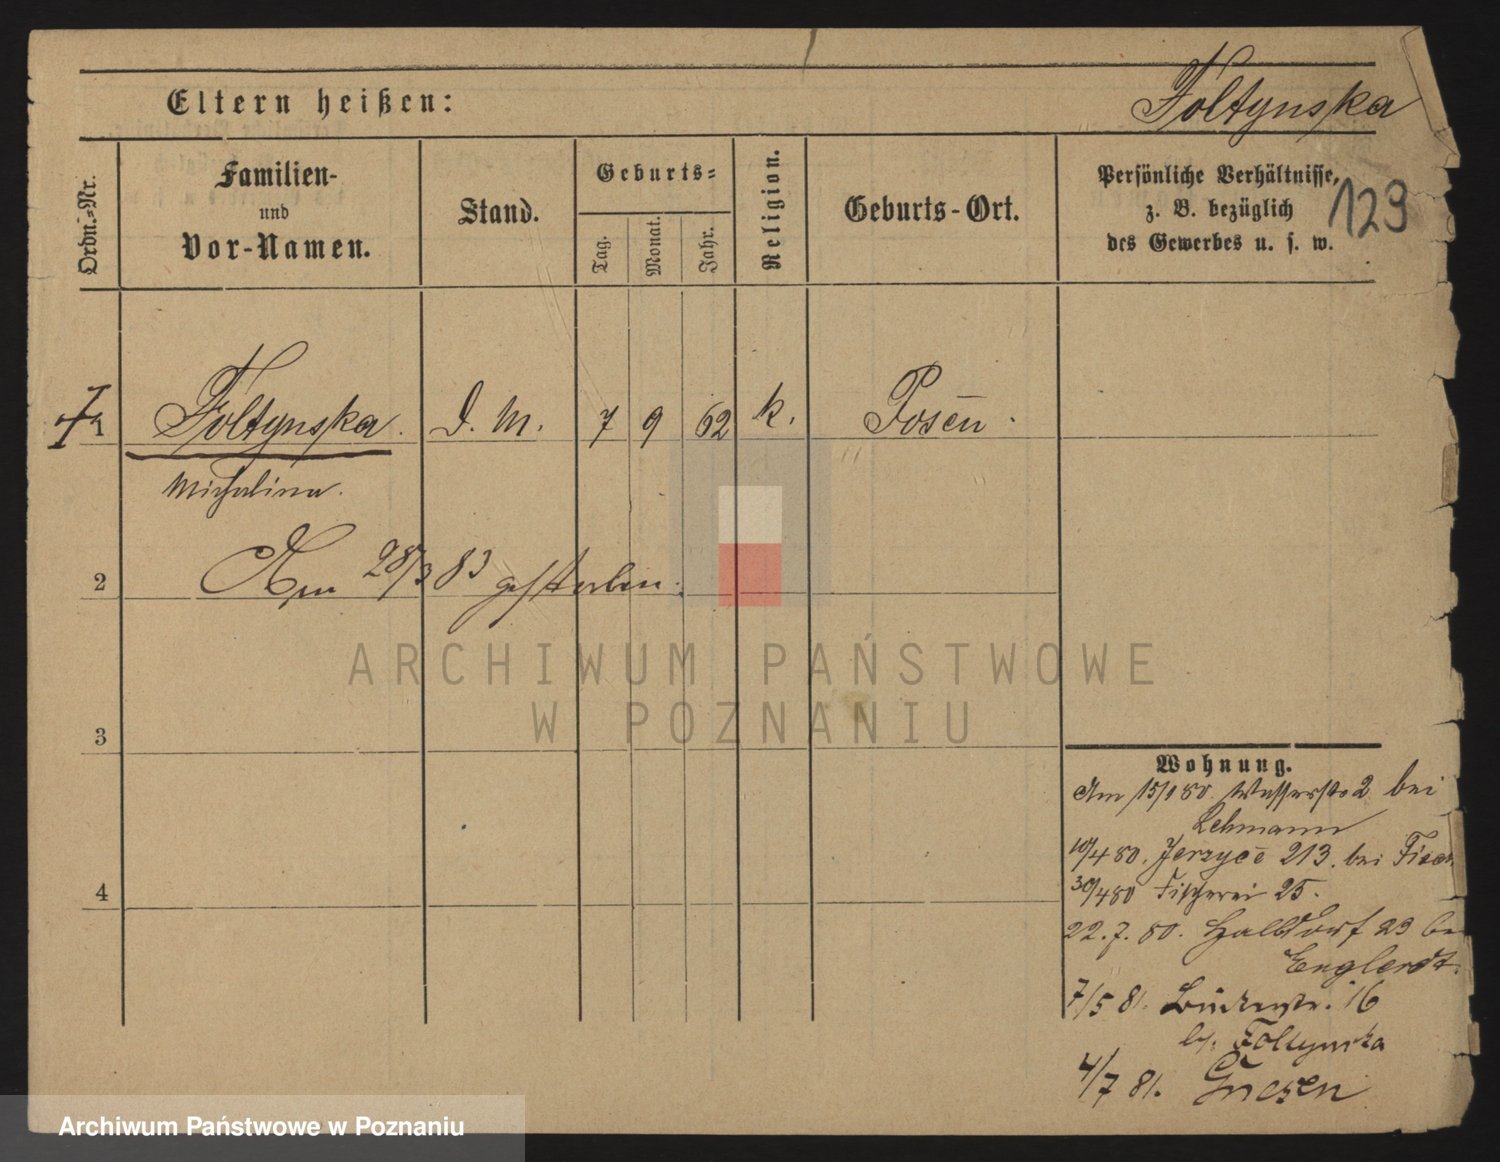 Foltynska
Eltern heißen:
129
Ordn.-Nr.
Familien-
und
Vor-Namen.
Stand.
Geburts-
Tag.
Monat.
Jahr.
Religion.
Geburts-Ort.
Persönliche Verhältnisse,
z. B. bezüglich
des Gewerbes u. s. w.
1 Foltynska. D. M. 7 9 62 k. Posen.
Michalina.
Am 28/3 83 gestorben.
2
3
4
Wohnung.
Am 15/1 80. Wasserstr 2 bei
Lehmann
10/4 80. Jerzyce 213. bei
30/4 80 Fischerei 25.
22.7.80. Halbdorf 23
7/5 81. 16
b. Foltynska
4/7 81. Gnesen
ARCHIWUM PAŃSTWOWE
W POZNANIU
Archiwum Państwowe w Poznaniu